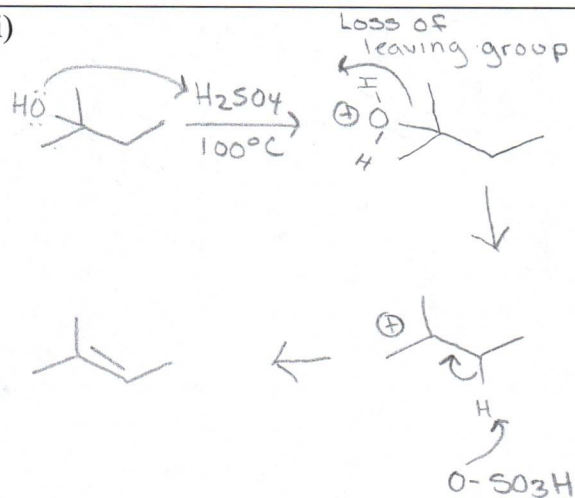 i)
Loss of
leaving group
HÖ
H2SO4
100°C
H
⊕ O
H
⊕
H
O-SO3H